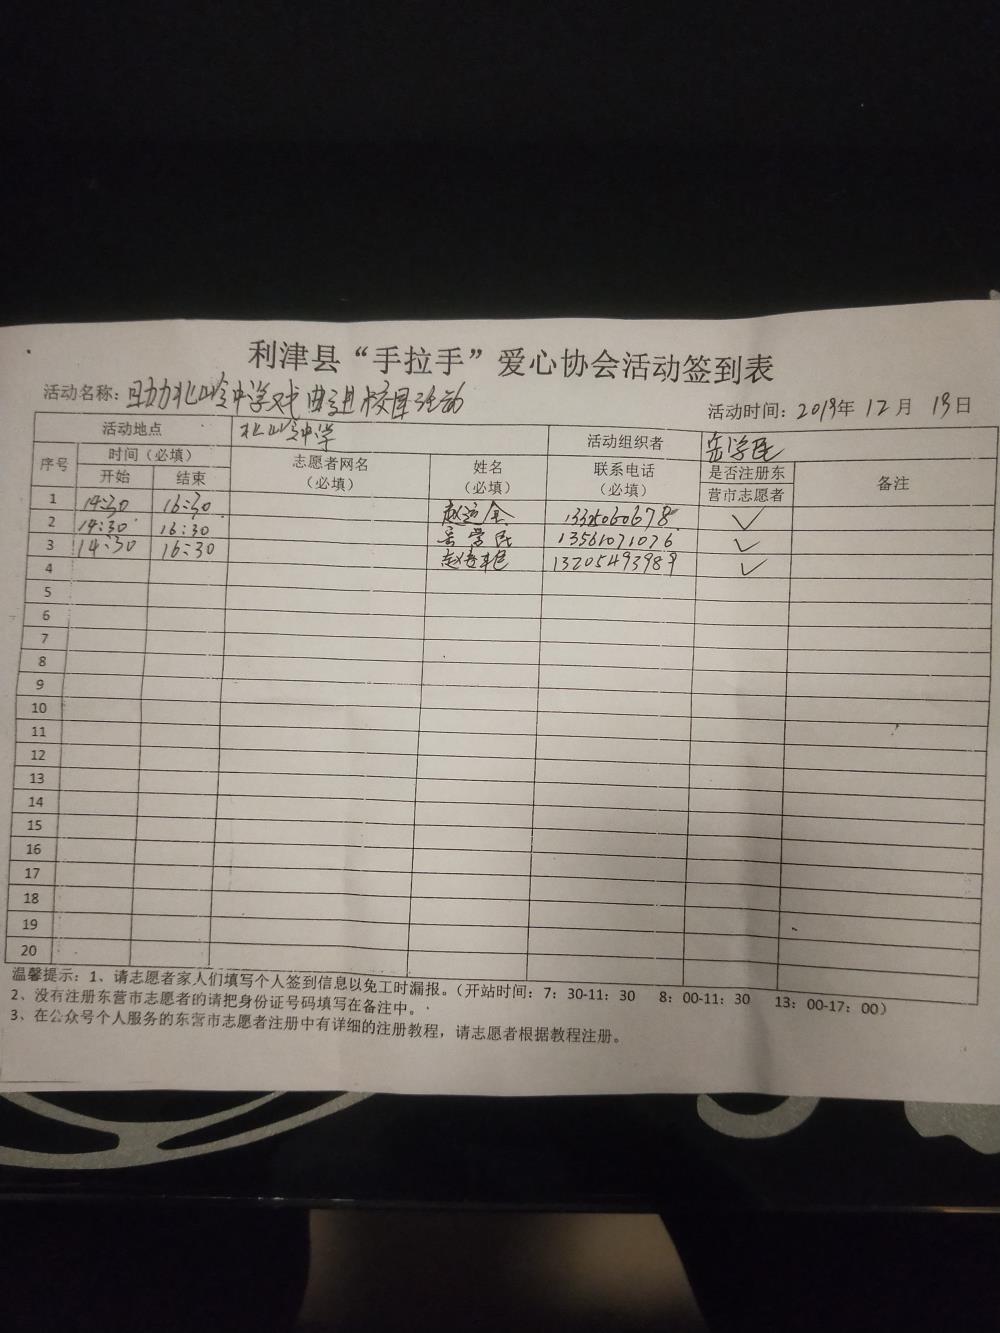 利津县“手拉手”爱心协会活动签到表
活动名称：助力北岭中学戏曲进校园活动
活动时间：2019年 12月 19日
活动地点 北岭中学 活动组织者 岳学民
序号 时间（必填） 志愿者网名（必填） 姓名（必填） 联系电话（必填） 是否注册东营市志愿者 备注
开始 结束
1 14:30 16:30 13325060678 ✓
2 14:30 16:30 岳学民 13561071076 ✓
3 14:30 16:30 13205493989 ✓
4
5
6
7
8
9
10
11
12
13
14
15
16
17
18
19
20
温馨提示：1、请志愿者家人们填写个人签到信息以免工时漏报。（开站时间：7：30-11：30 8：00-11：30 13：00-17：00）
2、没有注册东营市志愿者的请把身份证号码填写在备注中。
3、在公众号个人服务的东营市志愿者注册中有详细的注册教程，请志愿者根据教程注册。